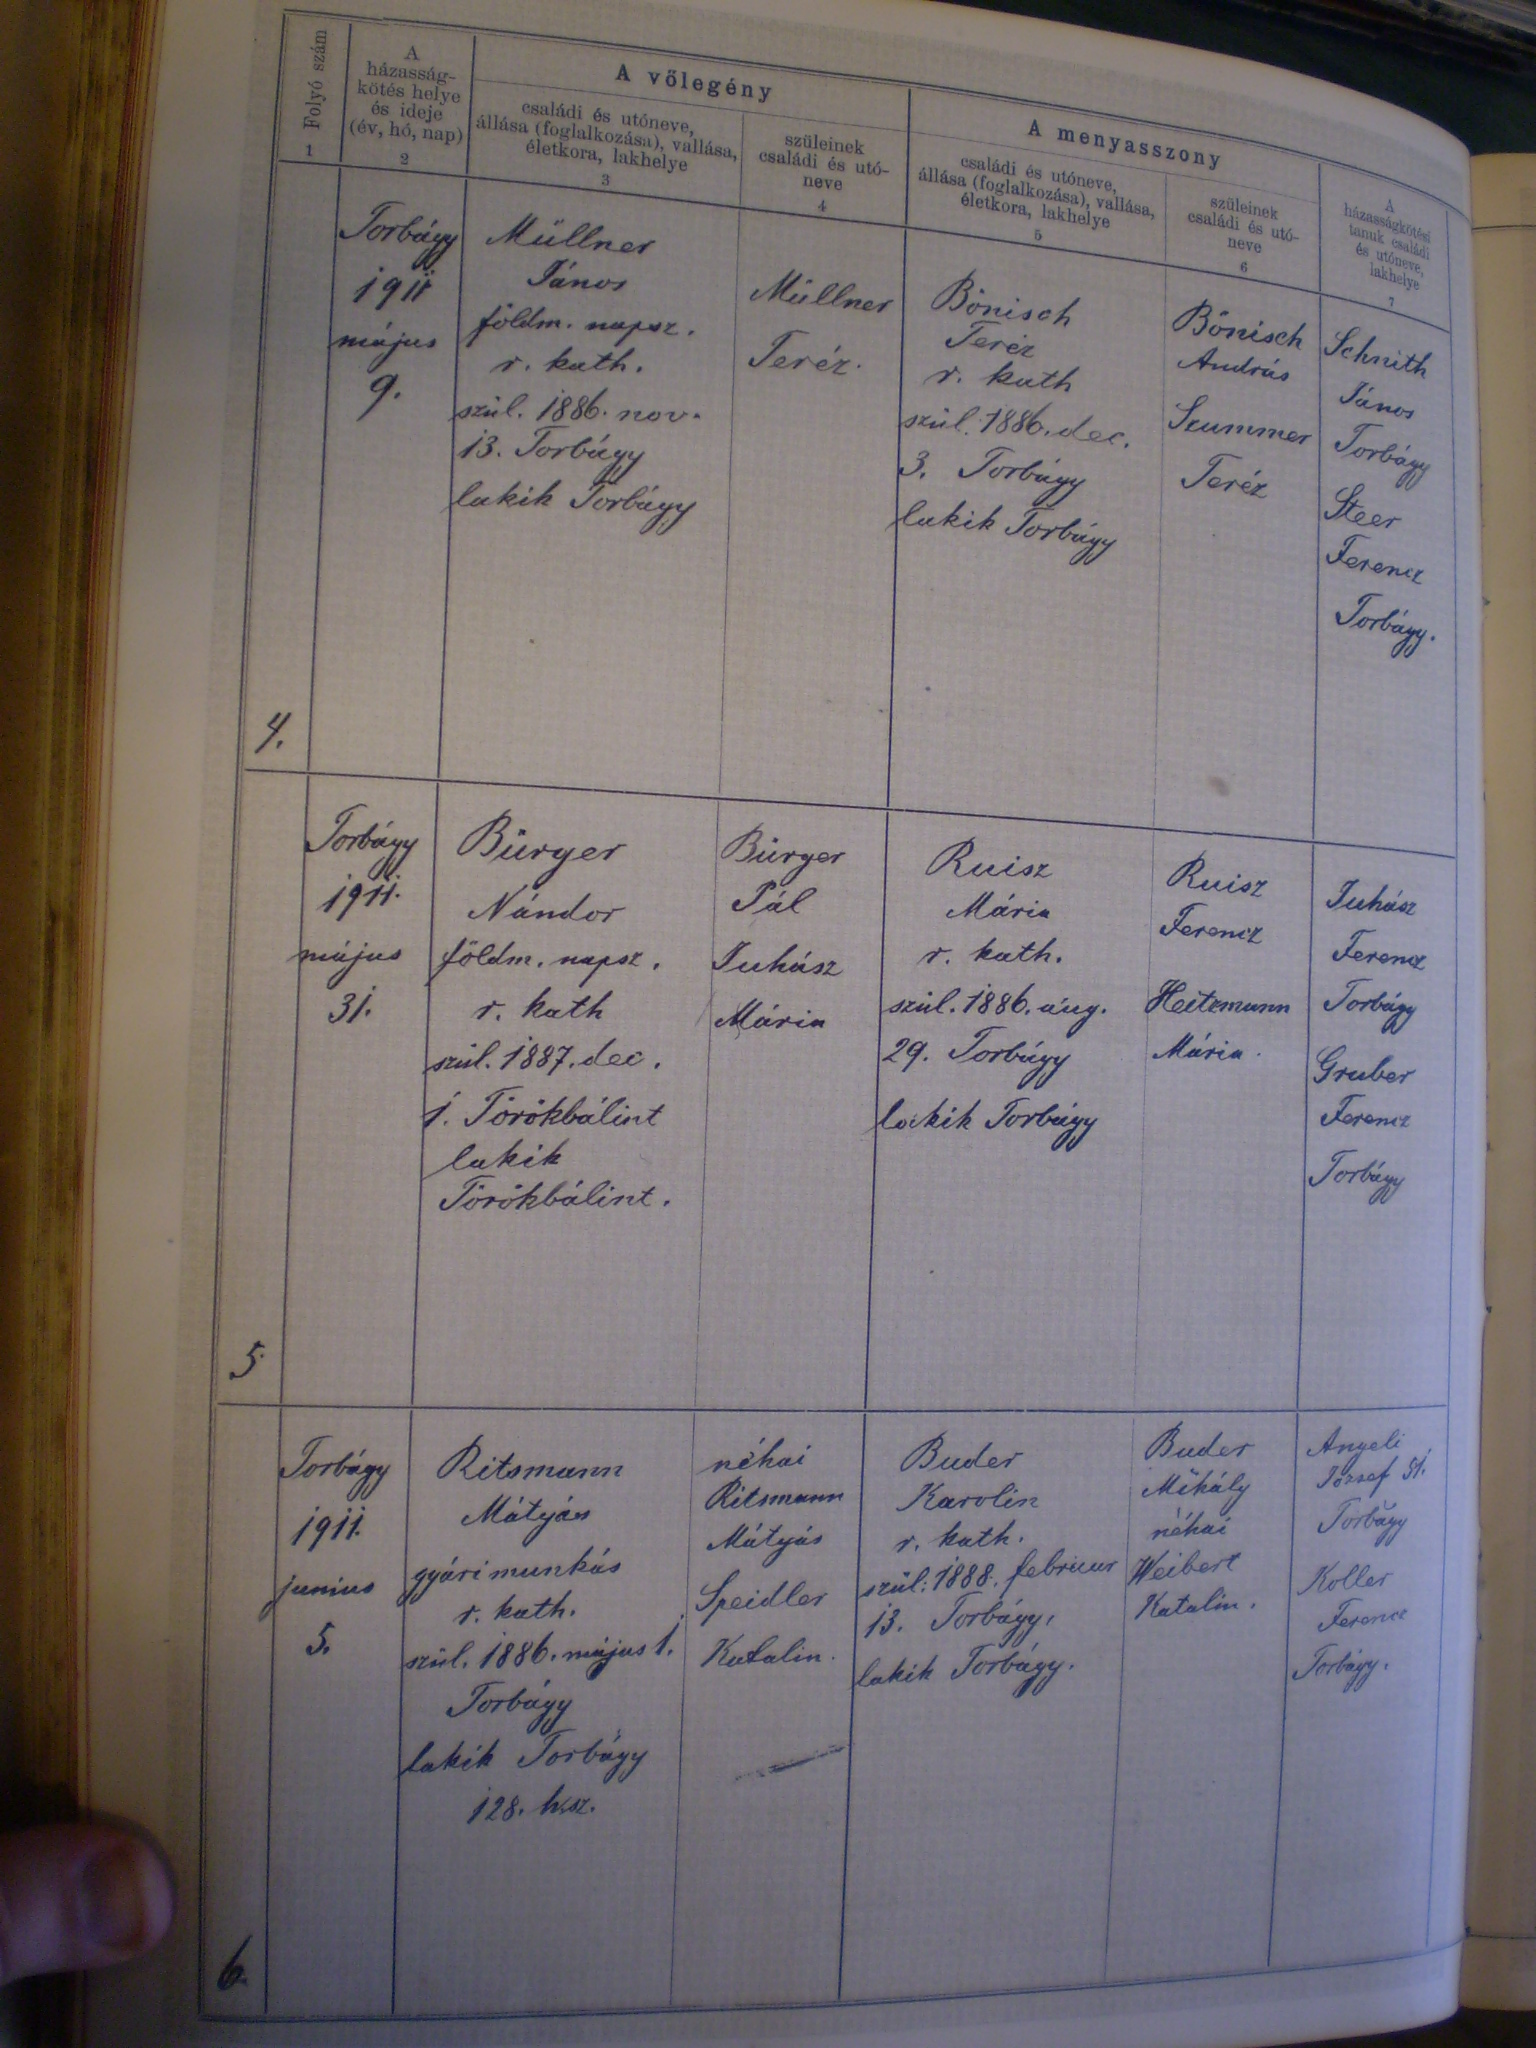 A vőlegény
A menyasszony
Folyó szám
1
A
házasság-
kötés helye
és ideje
(év, hó, nap)
2
családi és utóneve,
állása (foglalkozása), vallása,
életkora, lakhelye
3
szüleinek
családi és utó-
neve
4
családi és utóneve,
állása (foglalkozása), vallása,
életkora, lakhelye
5
szüleinek
családi és utó-
neve
6
A
házasságkötési
tanuk családi
és utóneve,
lakhelye
7
4.
Torbágy
1911
május
9.
Müllner
János
földm. napsz.
r. kath.
szül. 1886. nov.
13. Torbágy
lakik Torbágy
Müllner
Teréz.
Bönisch
Teréz
r. kath
szül. 1886. dec.
3. Torbágy
lakik Torbágy
Bönisch
András
Teréz
Schnith
János
Torbágy
Steer
Ferencz
Torbágy.
5
Torbágy
1911.
május
31.
Bürger
Nándor
földm. napsz.
r. kath
szül. 1887. dec.
1. Törökbálint
lakik
Törökbálint.
Bürger
Pál
Juhász
Mária
Ruisz
Mária
r. kath.
szül. 1886. aug.
29. Torbágy
lakik Torbágy
Ruisz
Ferencz
Heitzmann
Mária.
Juhász
Ferencz
Torbágy
Gruber
Ferencz
Torbágy
6
Torbágy
1911.
junius
5.
Ritsmann
Mátyás
gyári munkás
r. kath.
szül. 1886. május 1.
Torbágy
lakik Torbágy
128. hsz.
néhai
Ritsmann
Mátyás
Speidler
Katalin.
Buder
Karolin
r. kath.
szül: 1888. februar
13. Torbágy,
lakik Torbágy.
Buder
Mihály
néhai
Weibert
Katalin.
Angeli
József
Torbágy
Koller
Ferencz
Torbágy.